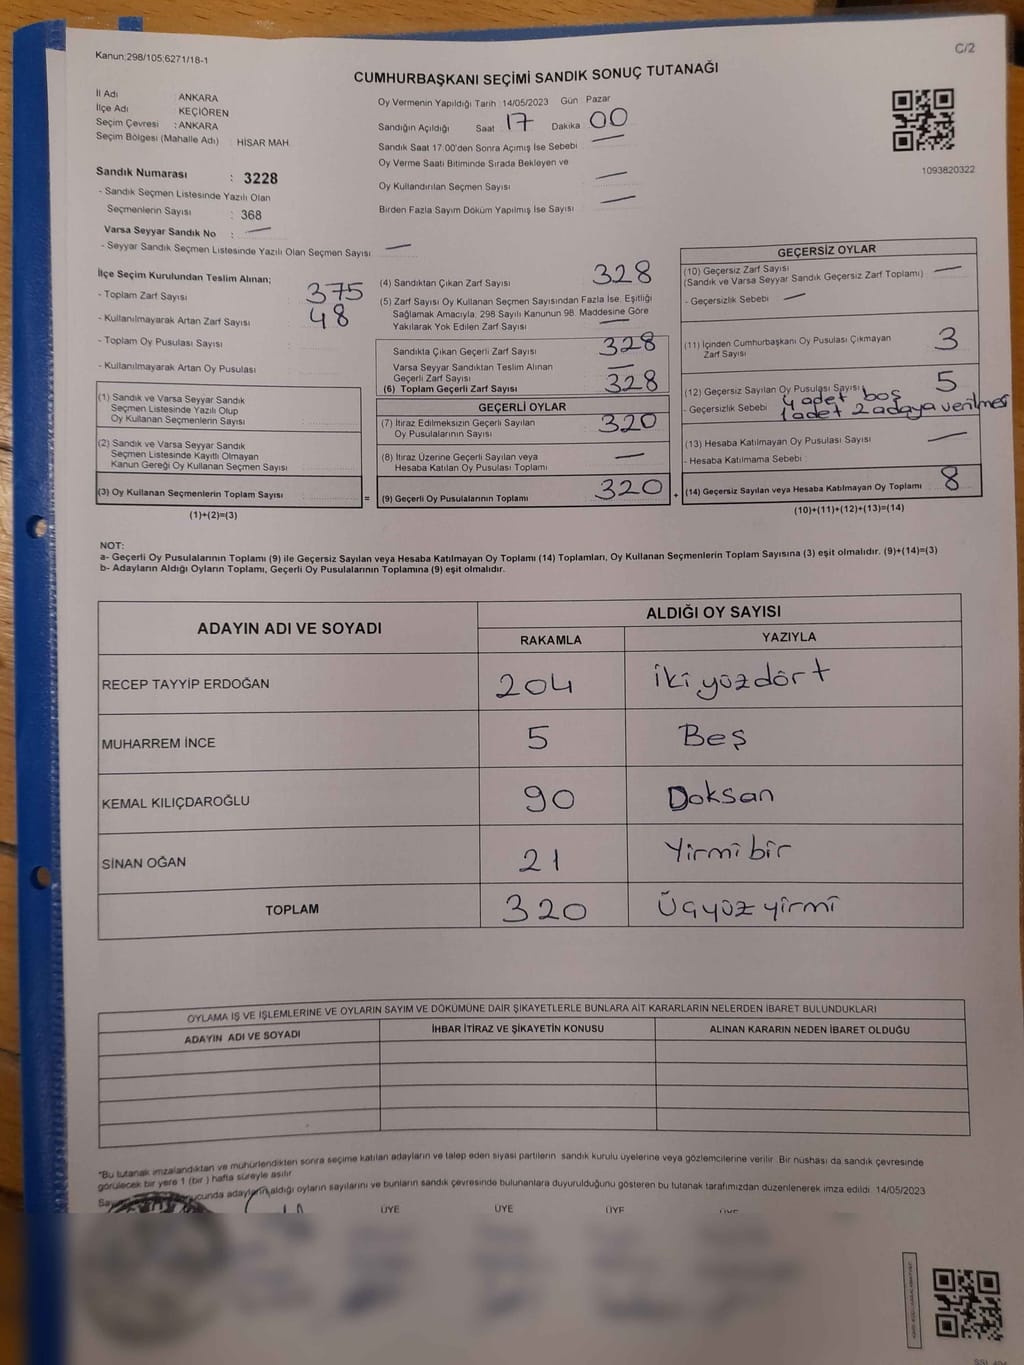 Kanun:298/105;6271/18-1
C/2
CUMHURBAŞKANI SEÇİMİ SANDIK SONUÇ TUTANAĞI
İl Adı : ANKARA
İlçe Adı : KEÇİÖREN
Seçim Çevresi : ANKARA
Seçim Bölgesi (Mahalle Adı) : HİSAR MAH.
Sandık Numarası : 3228
- Sandık Seçmen Listesinde Yazılı Olan
Seçmenlerin Sayısı : 368
Varsa Seyyar Sandık No : —
- Seyyar Sandık Seçmen Listesinde Yazılı Olan Seçmen Sayısı —
Oy Vermenin Yapıldığı Tarih : 14/05/2023 Gün Pazar
Sandığın Açıldığı Saat 17 Dakika 00
Sandık Saat 17:00'den Sonra Açımış İse Sebebi —
Oy Verme Saati Bitiminde Sırada Bekleyen ve
Oy Kullandırılan Seçmen Sayısı —
Birden Fazla Sayım Döküm Yapılmış İse Sayısı —
1093820322
İlçe Seçim Kurulundan Teslim Alınan;
- Toplam Zarf Sayısı 375
- Kullanılmayarak Artan Zarf Sayısı 48
- Toplam Oy Pusulası Sayısı
- Kullanılmayarak Artan Oy Pusulası
(1) Sandık ve Varsa Seyyar Sandık
Seçmen Listesinde Yazılı Olup
Oy Kullanan Seçmenlerin Sayısı
(2) Sandık ve Varsa Seyyar Sandık
Seçmen Listesinde Kayıtlı Olmayan
Kanun Gereği Oy Kullanan Seçmen Sayısı
(3) Oy Kullanan Seçmenlerin Toplam Sayısı =
(1)+(2)=(3)
(4) Sandıktan Çıkan Zarf Sayısı 328
(5) Zarf Sayısı Oy Kullanan Seçmen Sayısından Fazla İse, Eşitliği
Sağlamak Amacıyla, 298 Sayılı Kanunun 98. Maddesine Göre
Yakılarak Yok Edilen Zarf Sayısı —
Sandıkta Çıkan Geçerli Zarf Sayısı 328
Varsa Seyyar Sandıktan Teslim Alınan
Geçerli Zarf Sayısı —
(6) Toplam Geçerli Zarf Sayısı 328
GEÇERLİ OYLAR
(7) İtiraz Edilmeksizin Geçerli Sayılan
Oy Pusulalarının Sayısı 320
(8) İtiraz Üzerine Geçerli Sayılan veya
Hesaba Katılan Oy Pusulası Toplamı —
(9) Geçerli Oy Pusulalarının Toplamı 320 +
GEÇERSİZ OYLAR
(10) Geçersiz Zarf Sayısı —
(Sandık ve Varsa Seyyar Sandık Geçersiz Zarf Toplamı)
- Geçersizlik Sebebi —
(11) İçinden Cumhurbaşkanı Oy Pusulası Çıkmayan
Zarf Sayısı 3
(12) Geçersiz Sayılan Oy Pusulası Sayısı 5
4 adet boş
- Geçersizlik Sebebi 1 adet 2 adaya verilmesi
(13) Hesaba Katılmayan Oy Pusulası Sayısı —
- Hesaba Katılmama Sebebi :
(14) Geçersiz Sayılan veya Hesaba Katılmayan Oy Toplamı 8
(10)+(11)+(12)+(13)=(14)
NOT:
a- Geçerli Oy Pusulalarının Toplamı (9) ile Geçersiz Sayılan veya Hesaba Katılmayan Oy Toplamı (14) Toplamları, Oy Kullanan Seçmenlerin Toplam Sayısına (3) eşit olmalıdır. (9)+(14)=(3)
b- Adayların Aldığı Oyların Toplamı, Geçerli Oy Pusulalarının Toplamına (9) eşit olmalıdır.
ADAYIN ADI VE SOYADI
ALDIĞI OY SAYISI
RAKAMLA YAZIYLA
RECEP TAYYİP ERDOĞAN 204 İki yüz dört
MUHARREM İNCE 5 Beş
KEMAL KILIÇDAROĞLU 90 Doksan
SİNAN OĞAN 21 Yirmi bir
TOPLAM 320 Üçyüz yirmi
OYLAMA İŞ VE İŞLEMLERİNE VE OYLARIN SAYIM VE DÖKÜMÜNE DAİR ŞİKAYETLERLE BUNLARA AİT KARARLARIN NELERDEN İBARET BULUNDUKLARI
ADAYIN ADI VE SOYADI İHBAR İTİRAZ VE ŞİKAYETİN KONUSU ALINAN KARARIN NEDEN İBARET OLDUĞU
*Bu tutanak imzalandıktan ve mühürlendikten sonra seçime katılan adayların ve talep eden siyasi partilerin sandık kurulu üyelerine veya gözlemcilerine verilir. Bir nüshası da sandık çevresinde
görülecek bir yere 1 (bir) hafta süreyle asılır.
adayların aldığı oyların sayılarını ve bunların sandık çevresinde bulunanlara duyurulduğunu gösteren bu tutanak tarafımızdan düzenlenerek imza edildi. 14/05/2023
ÜYE ÜYE ÜYE ÜYE